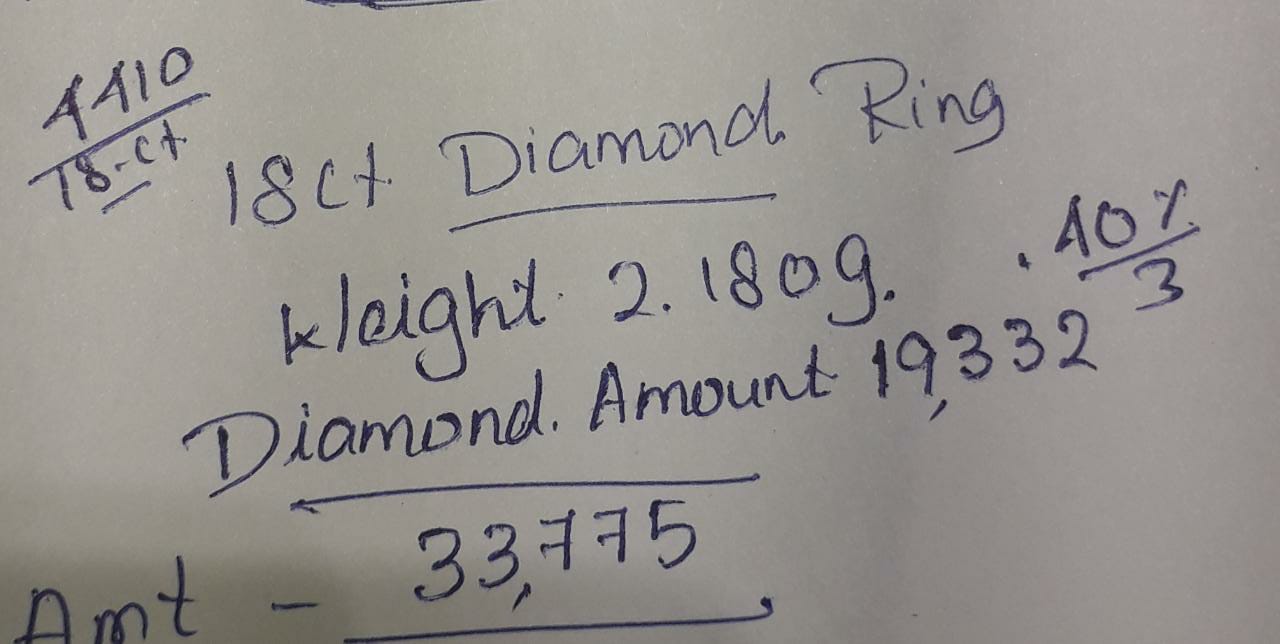 4410
18-ct
18ct Diamond Ring
40%
3
Weight 2.180g.
Diamond. Amount 19,332
33,775
Amt -